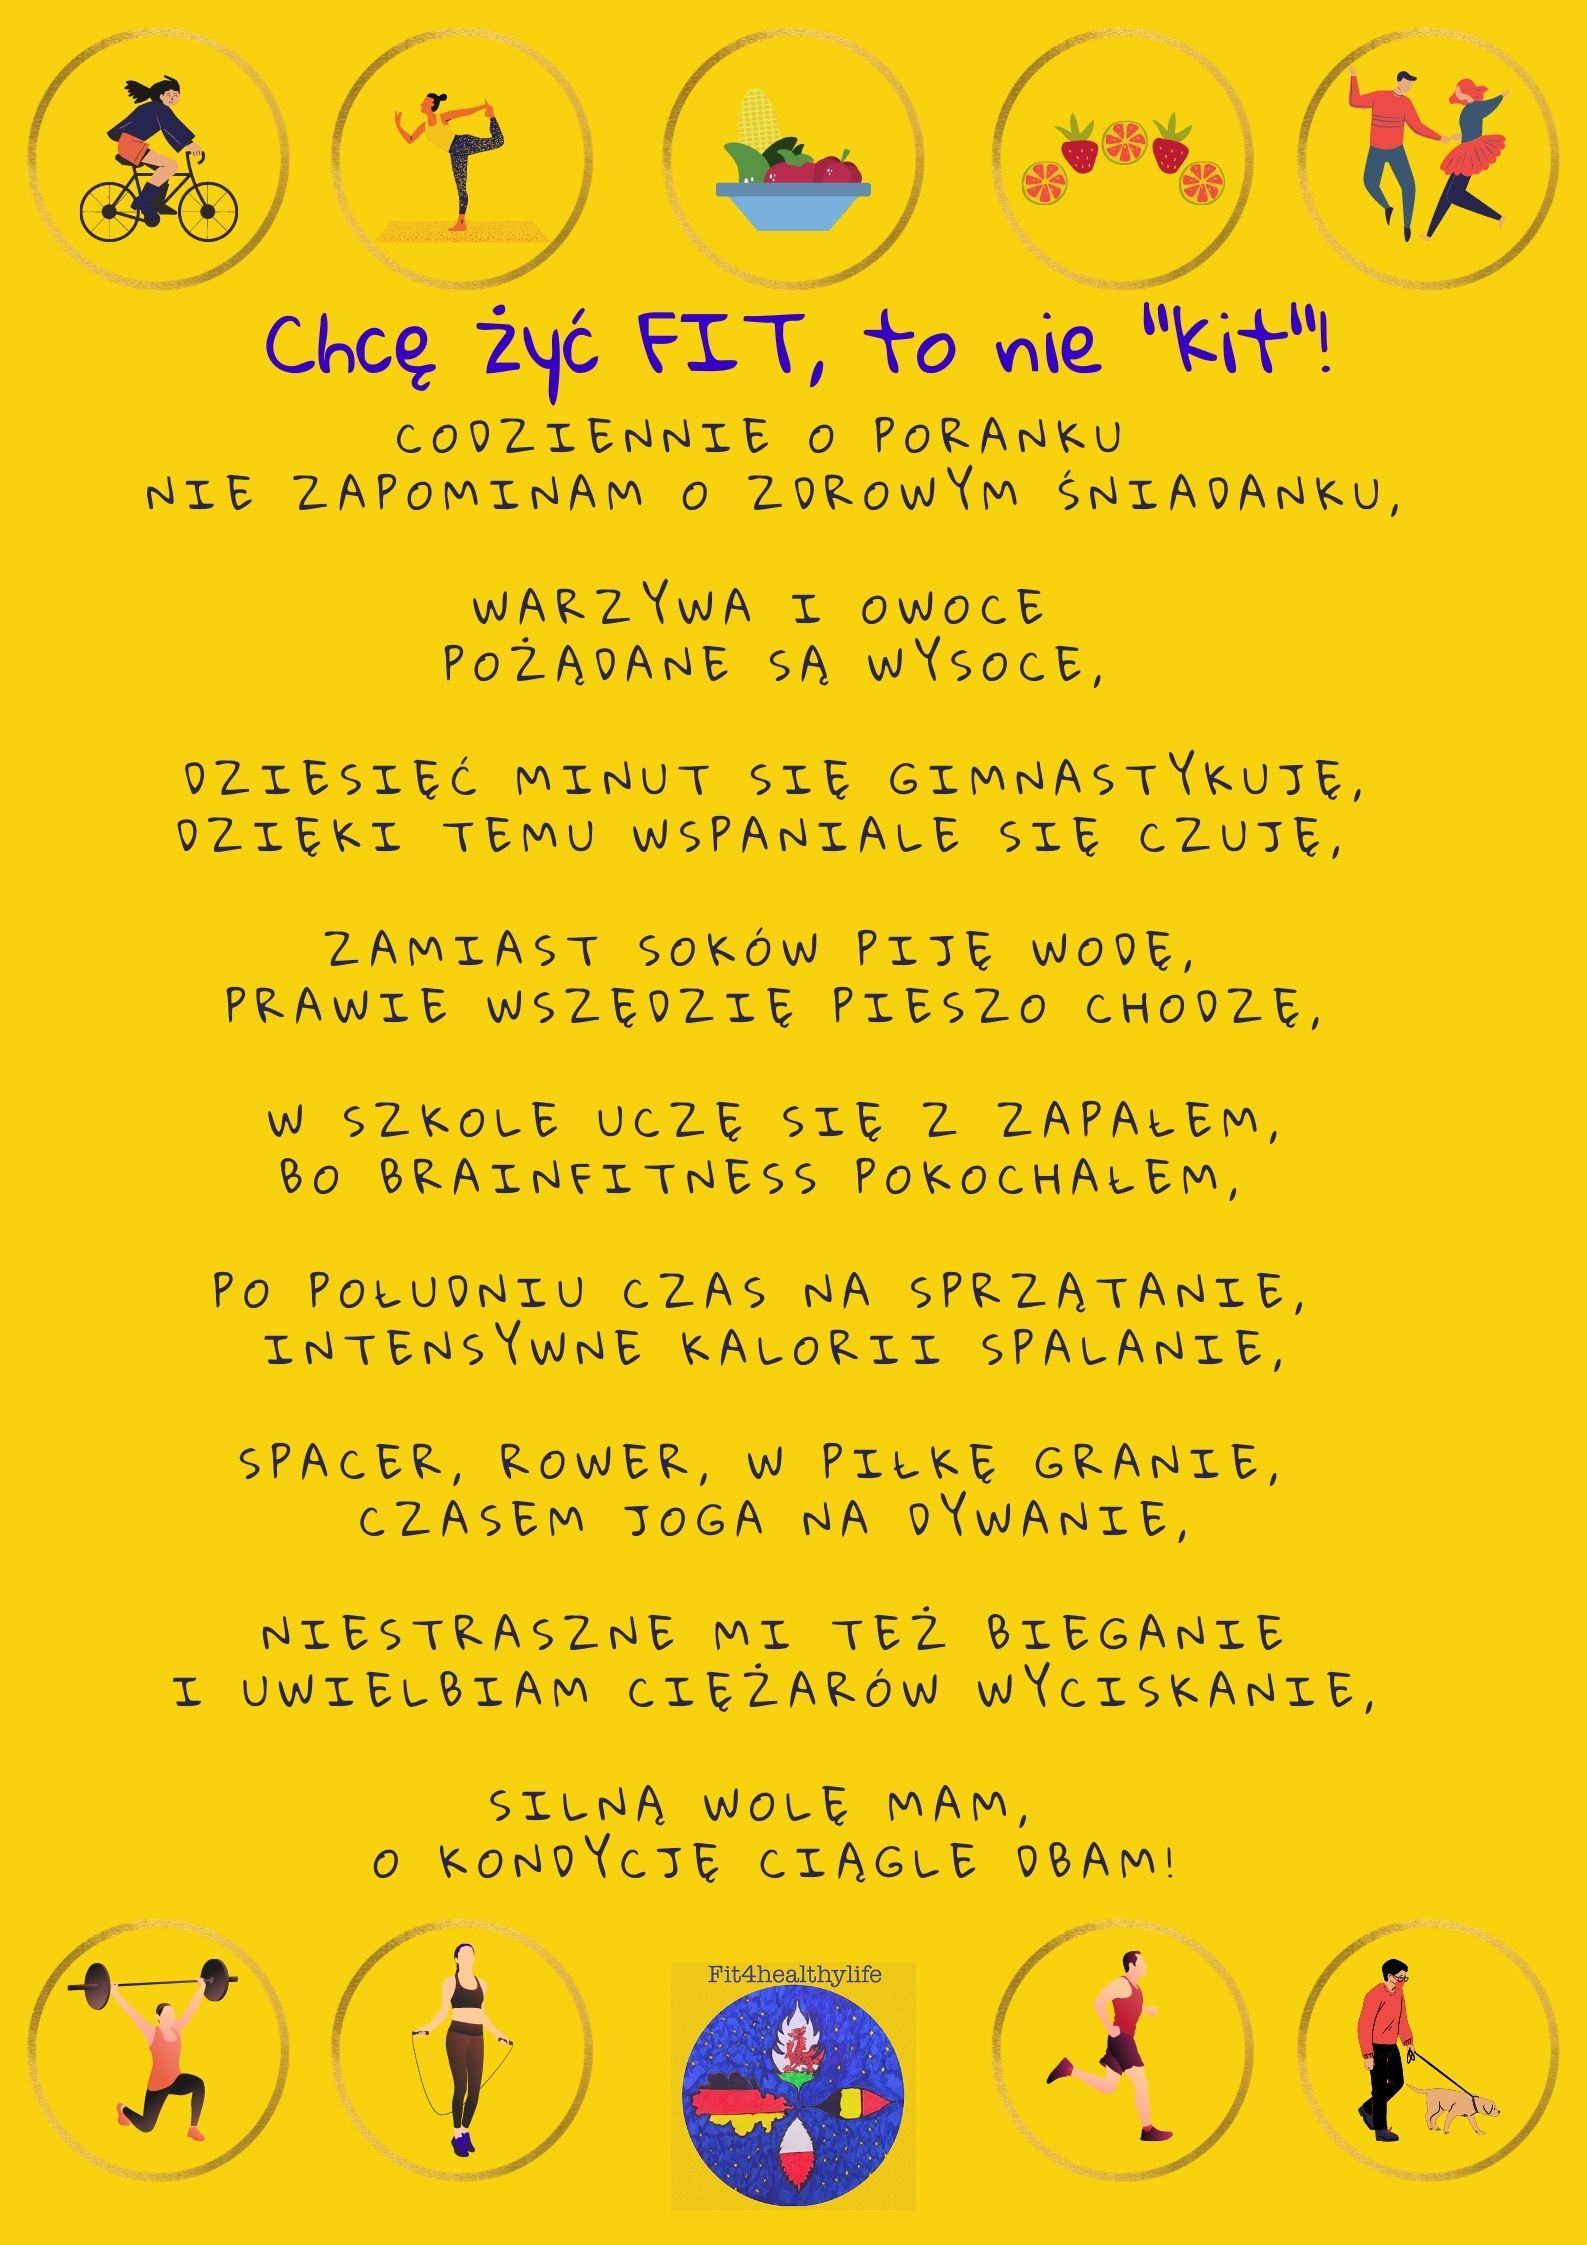 Chcę żyć FIT, to nie "kit"!
CODZIENNIE O PORANKU
NIE ZAPOMINAM O ZDROWYM ŚNIADANKU,
WARZYWA I OWOCE
POŻĄDANE SĄ WYSOCE,
DZIESIĘĆ MINUT SIĘ GIMNASTYKUJĘ,
DZIĘKI TEMU WSPANIALE SIĘ CZUJĘ,
ZAMIAST SOKÓW PIJĘ WODĘ,
PRAWIE WSZĘDZIĘ PIESZO CHODZĘ,
W SZKOLE UCZĘ SIĘ Z ZAPAŁEM,
BO BRAINFITNESS POKOCHAŁEM,
PO POŁUDNIU CZAS NA SPRZĄTANIE,
INTENSYWNE KALORII SPALANIE,
SPACER, ROWER, W PIŁKĘ GRANIE,
CZASEM JOGA NA DYWANIE,
NIESTRASZNE MI TEŻ BIEGANIE
I UWIELBIAM CIĘŻARÓW WYCISKANIE,
SILNĄ WOLĘ MAM,
O KONDYCJĘ CIĄGLE DBAM!
Fit4healthylife